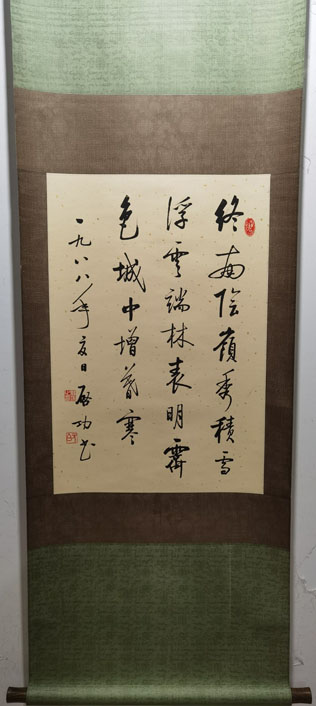 終南陰嶺秀積雪
浮雲端林表明霽
色城中增暮寒
一九八八年夏日啟功書